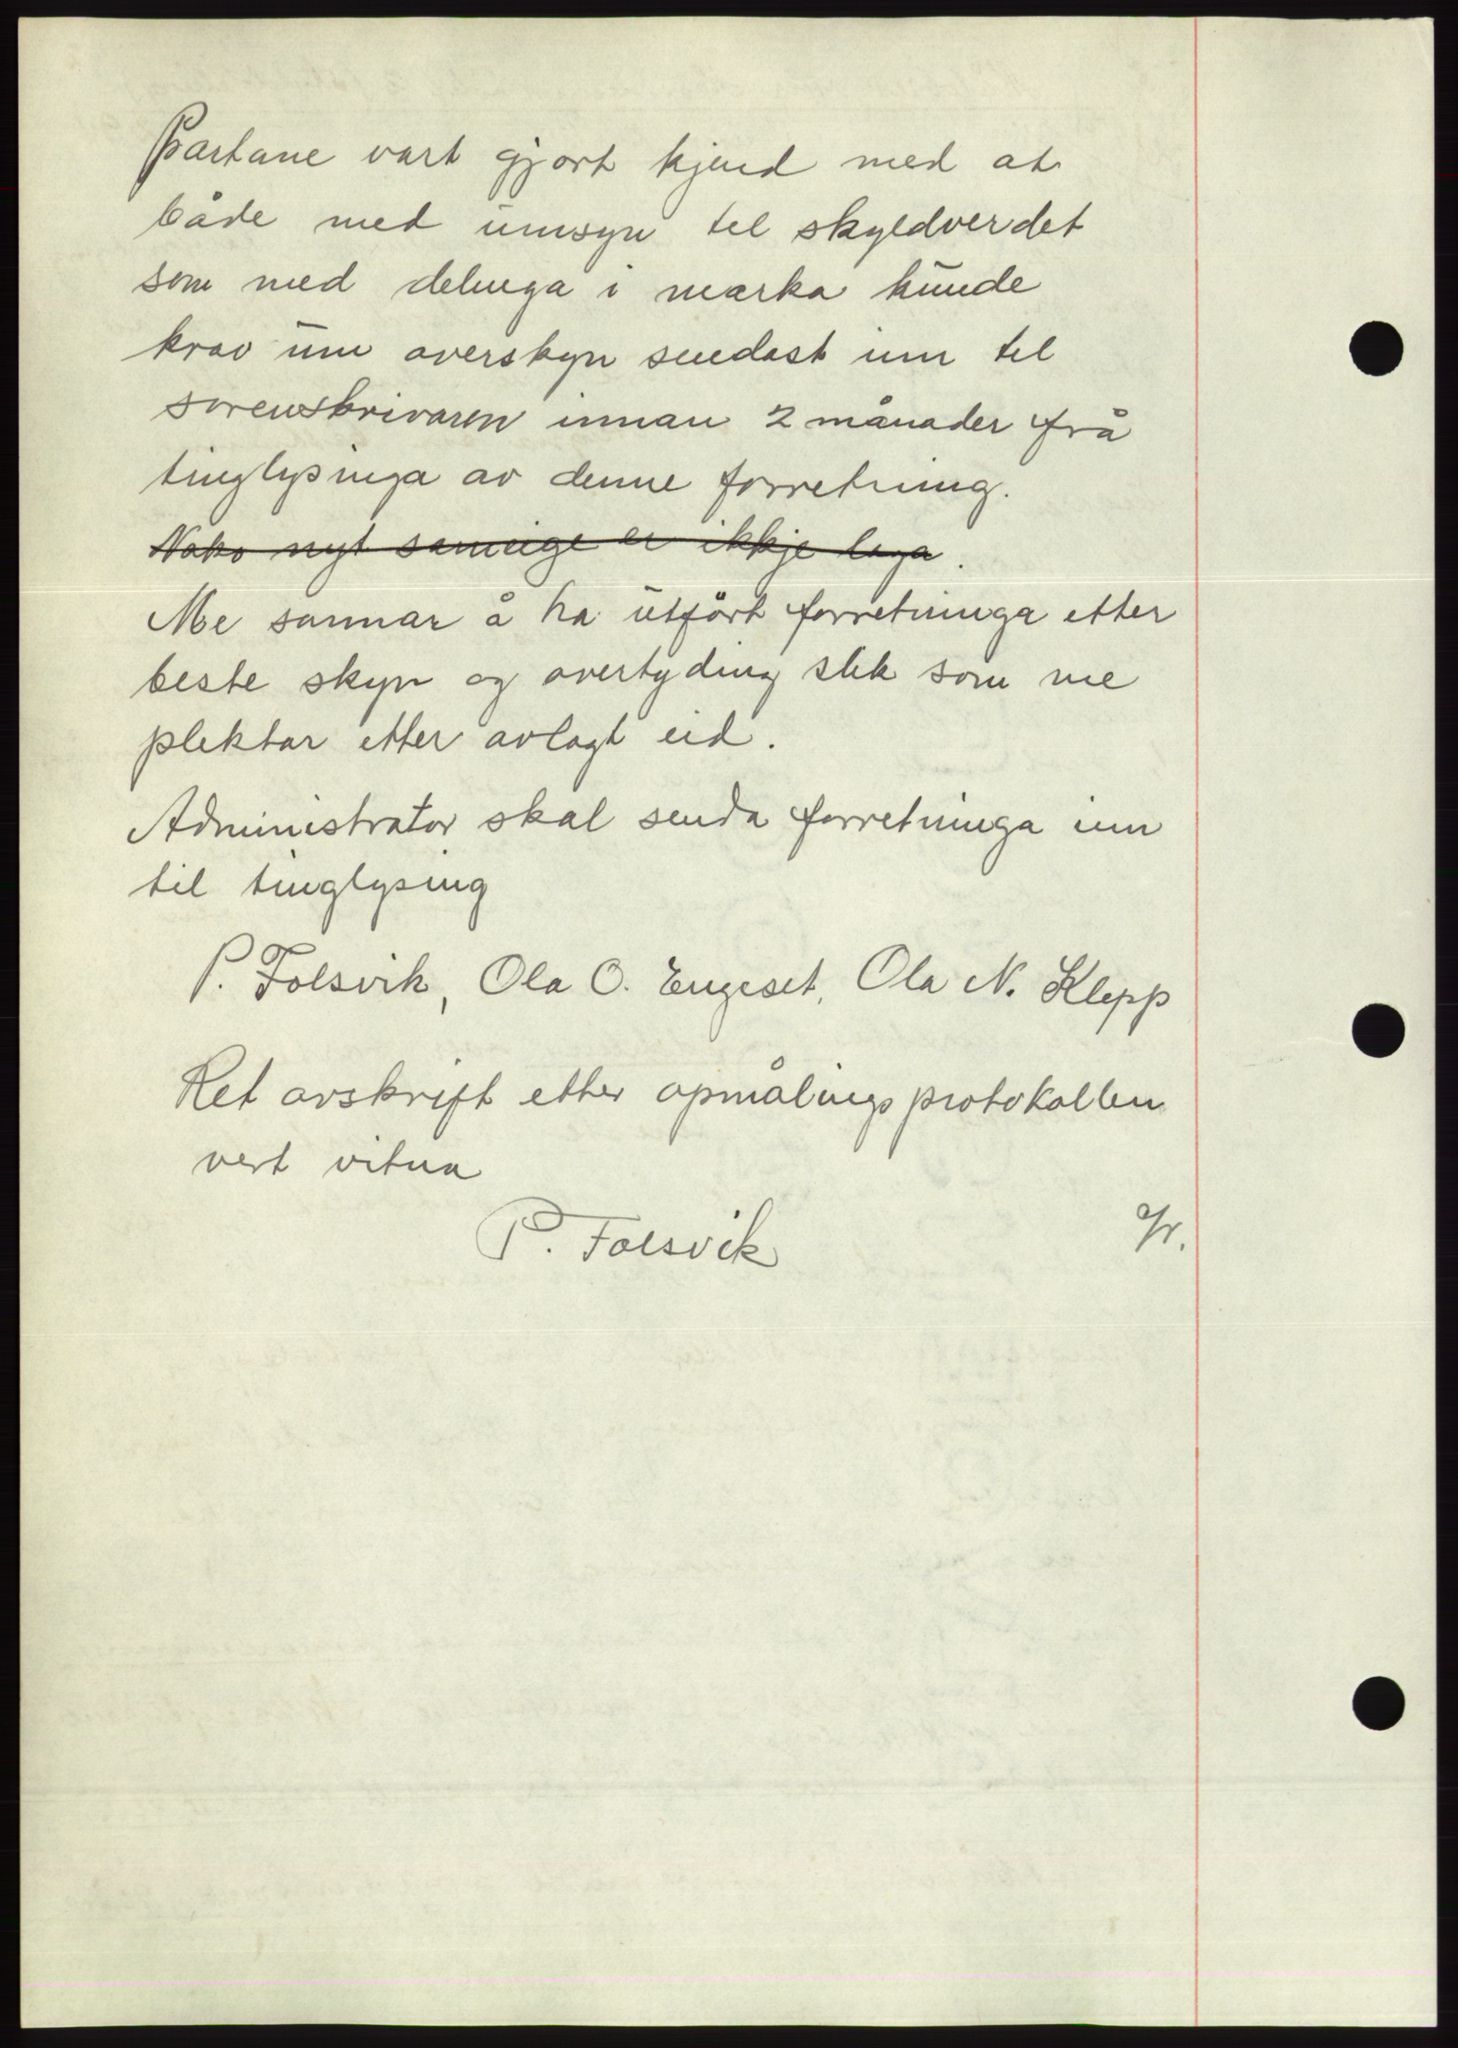 Partane vart gjort kjend med at
både med umsyn til skyldverdet
som med delinga i marka kunde
krav um overskyn sendast inn til
sorenskrivaren innan 2 månader frå
tinglysinga av denne forretning.
Noko nyt sameige er ikkje laga.
Me sannar å ha utført forretninga etter
beste skyn og overtyding slik som me
pliktar etter avlagt eid.
Administrator skal senda forretninga inn
til tinglysing
P. Folsvik, Ola O. Engeset, Ola N. Klepp
Ret avskrift etter opmålingsprotokollen
vert vitna
P. Folsvik